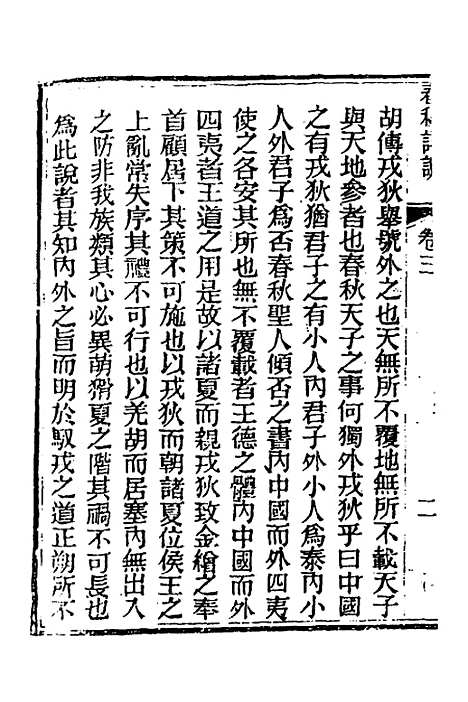 卷三
胡傳戎狄舉號外之也天無所不覆地無所不載天子
與天地參者也春秋天子之事何獨外戎狄乎曰中國
之有戎狄猶君子之有小人內君子外小人為泰內小
人外君子為否春秋聖人傾否之書內中國而外四夷
使之各安其所也無不覆載者王德之體內中國而外
四夷者王道之用是故以諸夏而親戎狄致金繒之奉
首顧居下其策不可施也以戎狄而朝諸夏位侯王之
上亂常失序其禮不可行也以羌胡而居塞內無出入
之防非我族類其心必異萌猾夏之階其禍不可長也
為此說者其知內外之旨而明於馭戎之道正朔所不